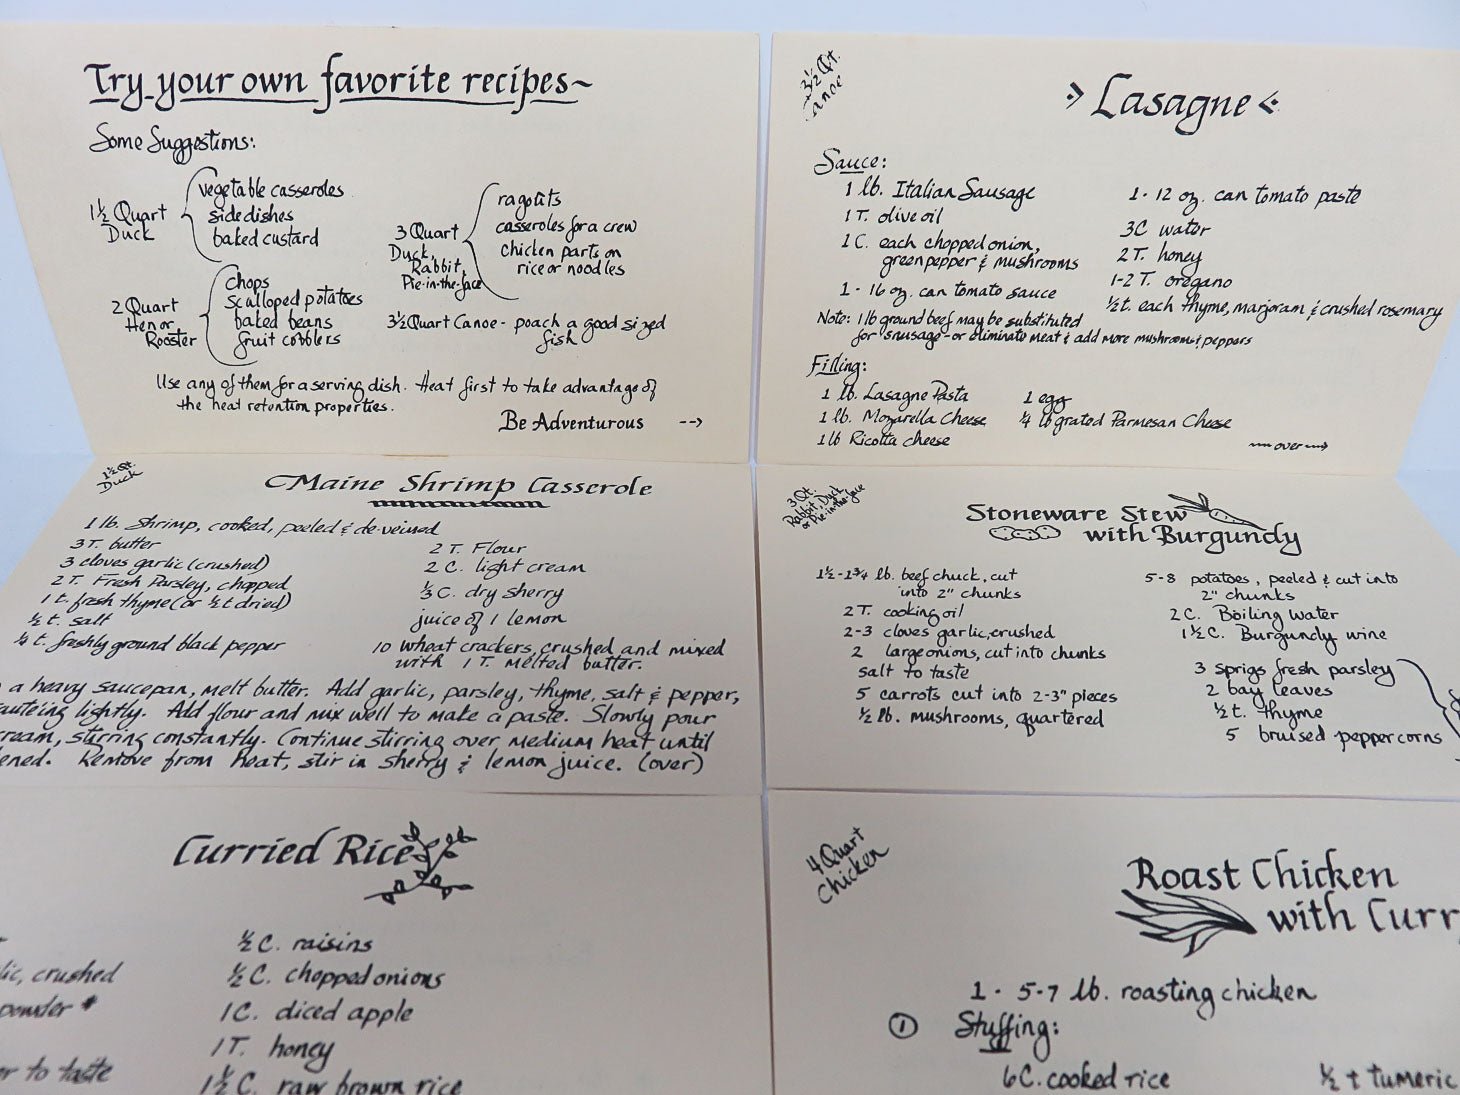 Try your own favorite recipes~
Some Suggestions:
1½ Quart
Duck
vegetable casseroles
side dishes
baked custard
2 Quart
Hen or
Rooster
chops
scalloped potatoes
baked beans
fruit cobblers
3 Quart
Duck,
Rabbit,
Pie-in-the-face
ragoûts
casseroles for a crew
chicken parts on
rice or noodles
3½ Quart Canoe - poach a good sized
fish
Use any of them for a serving dish. Heat first to take advantage of
the heat retention properties.
Be Adventurous -->
3½ Qt.
anoe
Lasagne
Sauce:
1 lb. Italian Sausage
1 T. olive oil
1 C. each chopped onion,
green pepper & mushrooms
1 - 16 oz. can tomato sauce
1 - 12 oz. can tomato paste
3C water
2 T. honey
1-2 T. oregano
½ t. each thyme, marjoram & crushed rosemary
Note: 1 lb ground beef may be substituted
for sausage - or eliminate meat & add more mushrooms & peppers
Filling:
1 lb. Lasagne Pasta
1 lb. Mozarella Cheese
1 lb Ricotta cheese
1 egg
¼ lb grated Parmesan Cheese
over
1½ Qt.
Duck
Maine Shrimp Casserole
1 lb. Shrimp, cooked, peeled & de-veined
3 T. butter
3 cloves garlic (crushed)
2 T. Fresh Parsley, chopped
1 t. fresh thyme (or ½ t dried)
½ t. salt
¼ t. freshly ground black pepper
2 T. Flour
2 C. light cream
⅓ C. dry sherry
juice of 1 lemon
10 wheat crackers, crushed and mixed
with 1 T. melted butter.
a heavy saucepan, melt butter. Add garlic, parsley, thyme, salt & pepper,
auteing lightly. Add flour and mix well to make a paste. Slowly pour
ream, stirring constantly. Continue stirring over medium heat until
ened. Remove from heat, stir in sherry & lemon juice. (over)
3 Qt.
Rabbit, Duck
or Pie-in-the-face
Stoneware Stew
with Burgundy
1½-1¾ lb. beef chuck, cut
into 2" chunks
2 T. cooking oil
2-3 cloves garlic, crushed
2 large onions, cut into chunks
salt to taste
5 carrots cut into 2-3" pieces
½ lb. mushrooms, quartered
5-8 potatoes, peeled & cut into
2" chunks
2 C. Boiling water
1½ C. Burgundy wine
3 sprigs fresh parsley
2 bay leaves
½ t. thyme
5 bruised peppercorns
Curried Rice
lic, crushed
powder *
er to taste
½ C. raisins
½ C. chopped onions
1 C. diced apple
1 T. honey
1½ C. raw brown rice
4 Quart
Chicken
Roast Chicken
with Curry
1 - 5-7 lb. roasting chicken
① Stuffing:
6 C. cooked rice
½ t tumeric